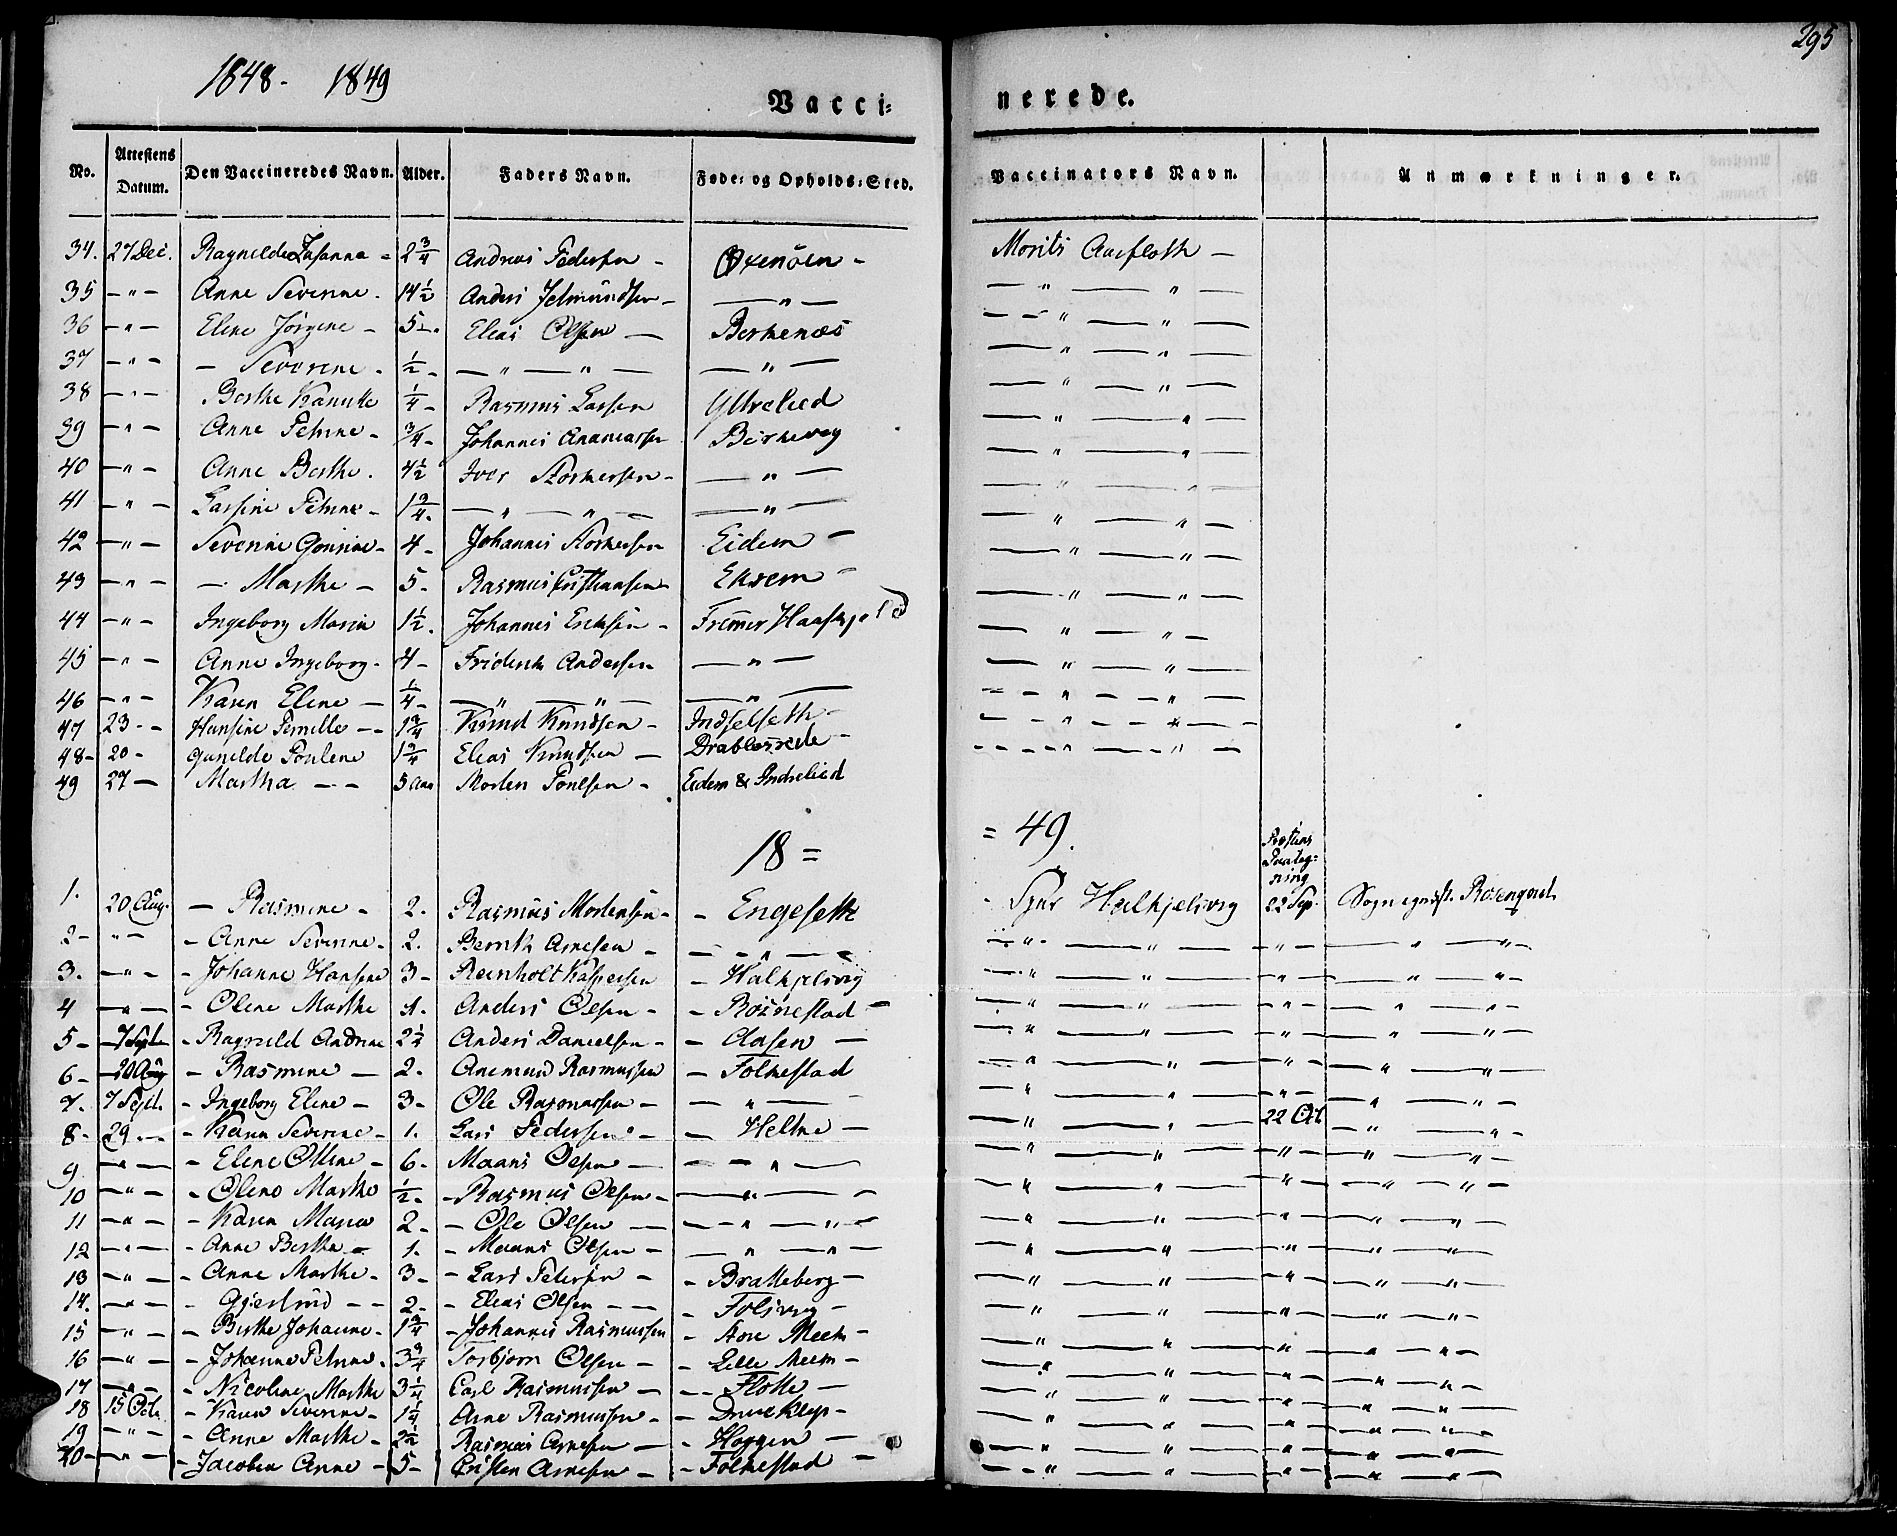 295
1848- 1849
Vacci= nerede.
No. | Attestens Datum. | Den Vaccineredes Navn. | Alder. | Faders Navn. | Føde= og Opholds=Sted. | Vaccinators Navn. | Anmærkninger.
34. | 27 Dec. | Ragnilde Susanna - | 2 3/4 | Andreas Pedersen - | Oxenöen - | Morits Aarfloth -
35 | - " - | Anne Severine. | 14 1/2 | Anders Jetmundsen - | - " - | - " - " -
36 | - " - | Elene Jörgine - | 5 -. | Elias Olsen - | Berkenæs | - " - " -
37 | - " - | - Severine - | 1/2 - | - " - " - | - " - | - " - " -
38 | - " - | Berthe Kanutte | 1/4 - | Rasmus Larsen | Yttrelied | - " - " -
39 | - " - | Anne Petrine - | 3/4 - | Johannes Ananiassen | Birkevog | - " - " -
40 | - " - | Anne Berthe. | 4 1/2 | Iver Storkersen - | - " - | - " - " -
41 | - " - | Larsine Petrine - | 1 3/4. | - " - " - | - " - | - " - " -
42 | - " - | Severine Gurine - | 4 - | Johannes Storkersen | Eidem - | - " - " -
43 | - " - | - Marthe - | 5 - | Rasmus Cristiansen | Eksem - | - " - " -
44 | - " - | Ingeborg Maria | 1 1/2. | Johannes Ericksen - | Fremer Haaskjold | - " - " -
45 | - " - | Anne Ingeborg - | 4 - | Friderik Andersen | - " - | - " - " -
46 | - " - | Karen Elene - | 1/4 - | - " - " - | - " - | - " - " -
47 | 23 - - | Hansine Pernille - - | 1 3/4 | Knud Knudsen - | Indselseth - | - " - " -
48 - | 20 - | Gunilde Poulene | 1 3/4 | Elias Knudsen - | - | - " - " -
49 | 27 - | Martha - - | 5 Aar | Morten Poulsen - | Eidem & Indrelied
18 = = 49.
Præstens Paateg=ning
1. | 20 Aug. | - Rasmine - | 2. | Rasmus Mortensen - | - Engeseth | - Halkjelsvig | 22 Sep. | Sognepræst. Rosenqvist.
2 - | " - | - Anne Severine - | 2. | Bernth Arnesen - | - " - | - " - " - | - " - | - " - " -
3. | - " - | - Johanne Hansine | 3 - | Reinholt Kaspersen | - Halkjelsvig | - " - " - | - " - | - " - " -
4 | - " - | - Olene Marthe | 1. | Anders Olsen - | - Rönnestad - | - " - " - | - " - | - " - " -
5 - | 7 Sept. | - Ragnild Andrine | 2 1/2 | Anders Danielsen - | - Aasen - | - " - " - | - " - | - " - " -
6 - | 20 Aug | - Rasmine - | 2. | Anemund Rasmussen | - Folkestad | - " - " - | - " - | - " - " -
7. | 7 Sept. | - Ingeborg Elene - | 3 - | Ole Rasmussen - | - " - | - " - " - | - " - | - " - " -
8 - | 29 - - | - Karen Severine - | 1. | Lars Pedersen - | - Heltne - | - " - " - | 22 Oct | - " - " -
9. | - " - | - Elene Oline - | 6 - | Maans Olsen - | - " - | - " - " - | - " - | - " - " -
10 | - " - | - Olene Marthe | 1/2 - | - Rasmus Olsen - | - " - | - " - " - | - " - | - " - " -
11 | - " - | - Karen Maria | 2 - | - Ole Olsen - | - " - " - | - " - " - | - " - | - " - " -
12 | - " - | - Anne Berthe - | 1. | - Maans Olsen - | - " - " - | - " - " - | - " - | - " - " -
13 | - " - | - Anne Marthe - | 3 - | - Lars Petersen - | - Bratteberg - | - " - " - | - " - | - " - " -
14. | - " - | - Gjertrud - - | 2 - | - Elias Olsen - - | - Folsvig - | - " - " - | - " - | - " - " -
15 | - " - | - Birthe Johanne - | 1 3/4 | - Johannes Rasmussen | - Store Meem - | - " - " - | - " - | - " - " -
16 | - " - | - Johanne Petrine. | 3 3/4 | Torbjorn Olsen - | - Lille Meem - | - " - " - | - " - | - " - " -
17 | - " - | - Nicoline Marthe | 3 1/4 | Carl Rasmussen - | - - Flotte - | - " - " - | - " - | - " - " -
18 | 15 Oct. | - Karen Severine - | 1 1/4 | Arne Rasmussen - | - | - " - " - | - " - | - " - " -
19 | - " - | - Anne Marthe - | 2 1/2 | Rasmus Arnesen - | - Haggen - | - " - " - | - " - | - " - " -
20 - | - " - | - Jacobine Anne - | 5 - | Cristen Arnesen - | - Folkestad - | - " - " - | - " - | - " - " -